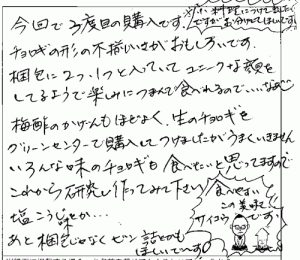 今回で3度目の購入です。
チョロギの形の不揃いさがおもしろいです。
梱包に2つ、1つと入っていてユニークな顔を
してるようで楽しみにつまんで食べれるので…
梅酢のかげんもほどよく、生のチョロギを
グリーンセンターで購入してつけましたがうまくいきません
いろんな味のチョロギも食べたいと思ってますので
これから研究し作ってみて下さい
塩こうじ味とか…
あと梱包じゃなくビン詰とかも
ほしいで〜す
料理につけて
ですがお分けしてほしいです
食べやすい
この美味さ
サイコウです